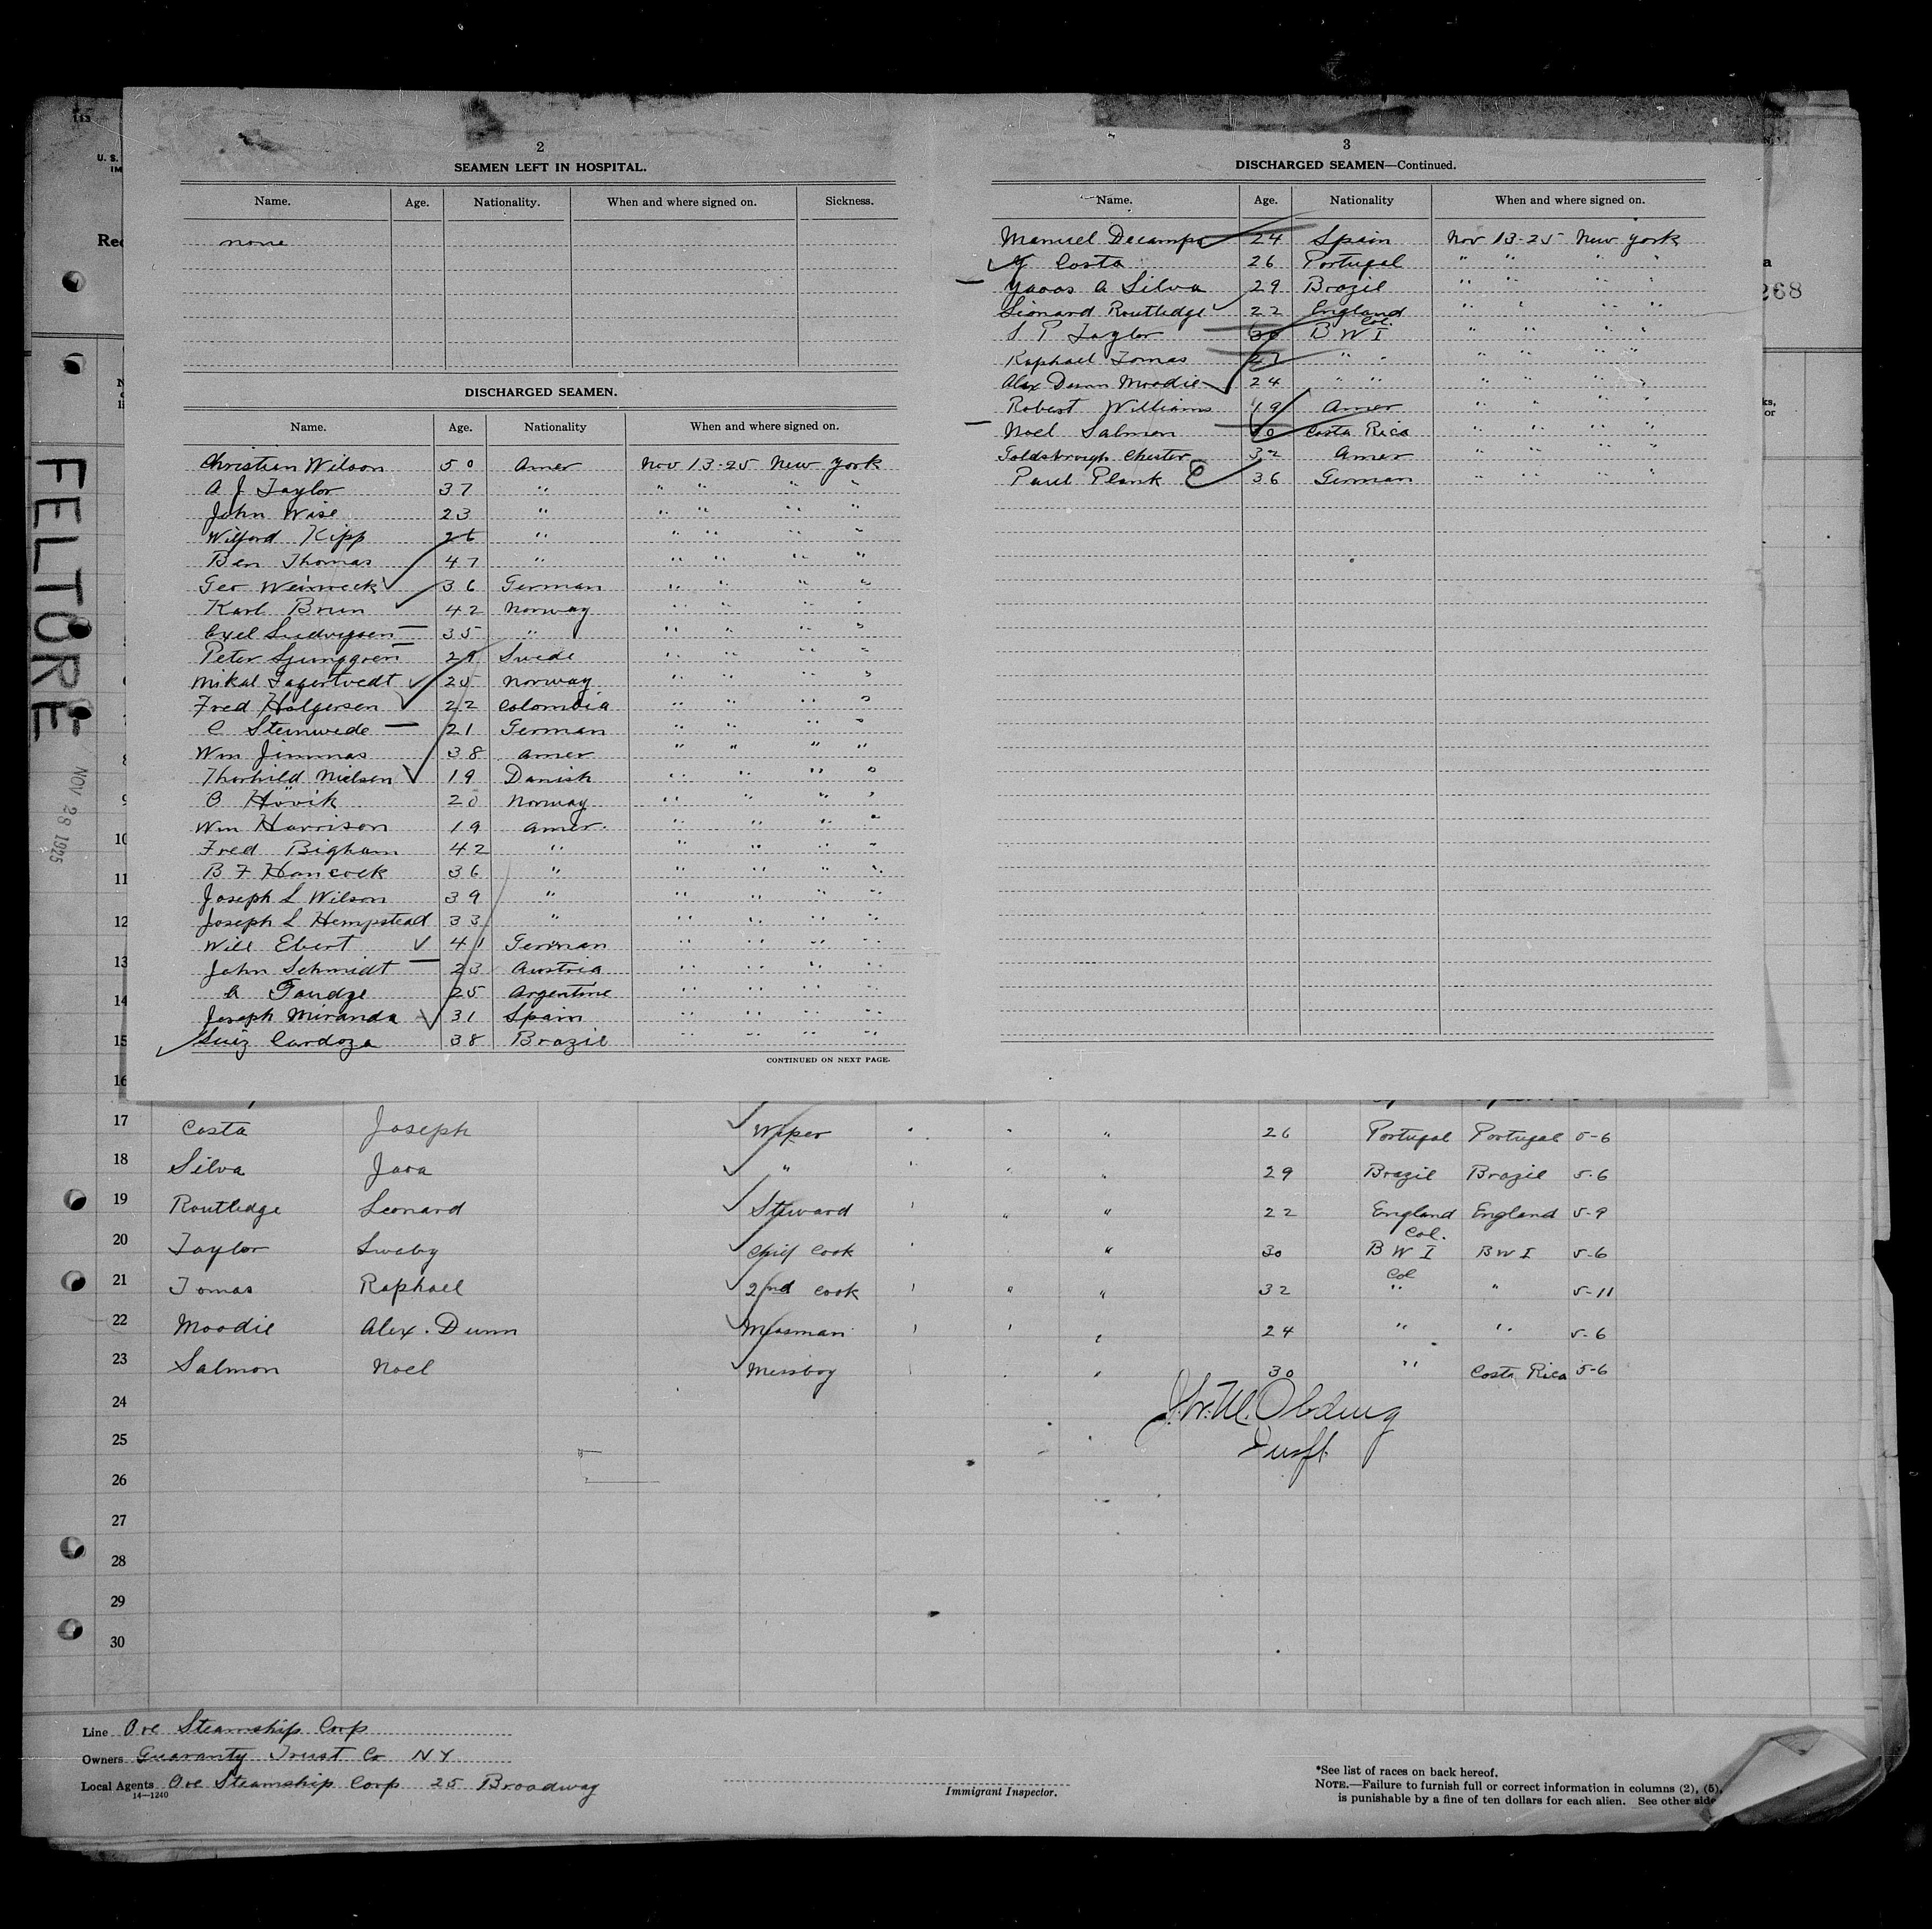 2
SEAMEN LEFT IN HOSPITAL.
Name. Age. Nationality. When and where signed on. Sickness.
none
DISCHARGED SEAMEN.
Name. Age. Nationality When and where signed on.
Christian Wilson 50 Amer Nov 13-25 New York
A J Taylor 37 " " " " "
John Wise 23 " " " " "
Wilford Kipp 26 " " " " "
Ben Thomas 47 " " " " "
Geo Weinreck 36 German " " " "
Karl Brun 42 Norway " " " "
Axel Ludvigsen 35 " " " " "
Peter Ljunggren 29 Swede " " " "
Mikal Lagertvedt 25 Norway " " " "
Fred Holgersen 22 Colombia " " " "
C Steinwede 21 German " " " "
Wm Jimmas 38 Amer " " " "
Thorhild Nielsen 19 Danish " " " "
O Hövik 20 Norway " " " "
Wm Harrison 19 Amer. " " " "
Fred Bigham 42 " " " " "
B F Hancock 36 " " " " "
Joseph L Wilson 39 " " " " "
Joseph L Hempstead 33 " " " " "
Will Ebert 41 German " " " "
John Schmidt 23 Austria " " " "
A 25 Argentine " " " "
Joseph Miranda 31 Spain " " " "
Luiz Cardoza 38 Brazil " " " "
CONTINUED ON NEXT PAGE.
3
DISCHARGED SEAMEN—Continued.
Name. Age. Nationality When and where signed on.
Manuel Decampo 24 Spain Nov 13-25 New York
J Costa 26 Portugal " " " "
A Silva 29 Brazil " " " "
Leonard Routledge 22 England " " " "
S P Taylor 30 B W I Col. " " " "
Raphael Tomas " " " " " "
Alex Dunn Moodie 24 " " " " " "
Robert Williams 19 Amer " " " "
Noel Salmon 30 Costa Rica " " " "
Goldsbrough Chester 32 Amer " " " "
Paul Plank 36 German " " " "
U. S.
IM
Rec
268
FELTORE
NOV 28 1925
5
6
7
8
9
10
11
12
13
14
15
16
17 Costa Joseph Wiper " " " 26 Portugal Portugal 5-6
18 Silva Jara " " " " 29 Brazil Brazil 5-6
19 Routledge Leonard Steward " " " 22 England England 5-9
20 Taylor Sweby Chief Cook " " 30 Col. B W I B W I 5-6
21 Tomas Raphael 2nd Cook " " " 32 Col " " 5-11
22 Moodie Alex. Dunn Messman " " " 24 " " 5-6
23 Salmon Noel Messboy " " " 30 " Costa Rica 5-6
24
25
26
27
28
29
30
Line Ore Steamship Corp
Owners Guaranty Trust Co NY
Local Agents Ore Steamship Corp 25 Broadway
14—1240
Immigrant Inspector.
*See list of races on back hereof.
NOTE.—Failure to furnish full or correct information in columns (2), (5),
is punishable by a fine of ten dollars for each alien. See other side